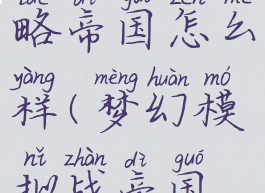 略帝国怎么
yàng mèng huàn mó
样(梦幻模
nǐ zhàn dì guó
拟战帝国